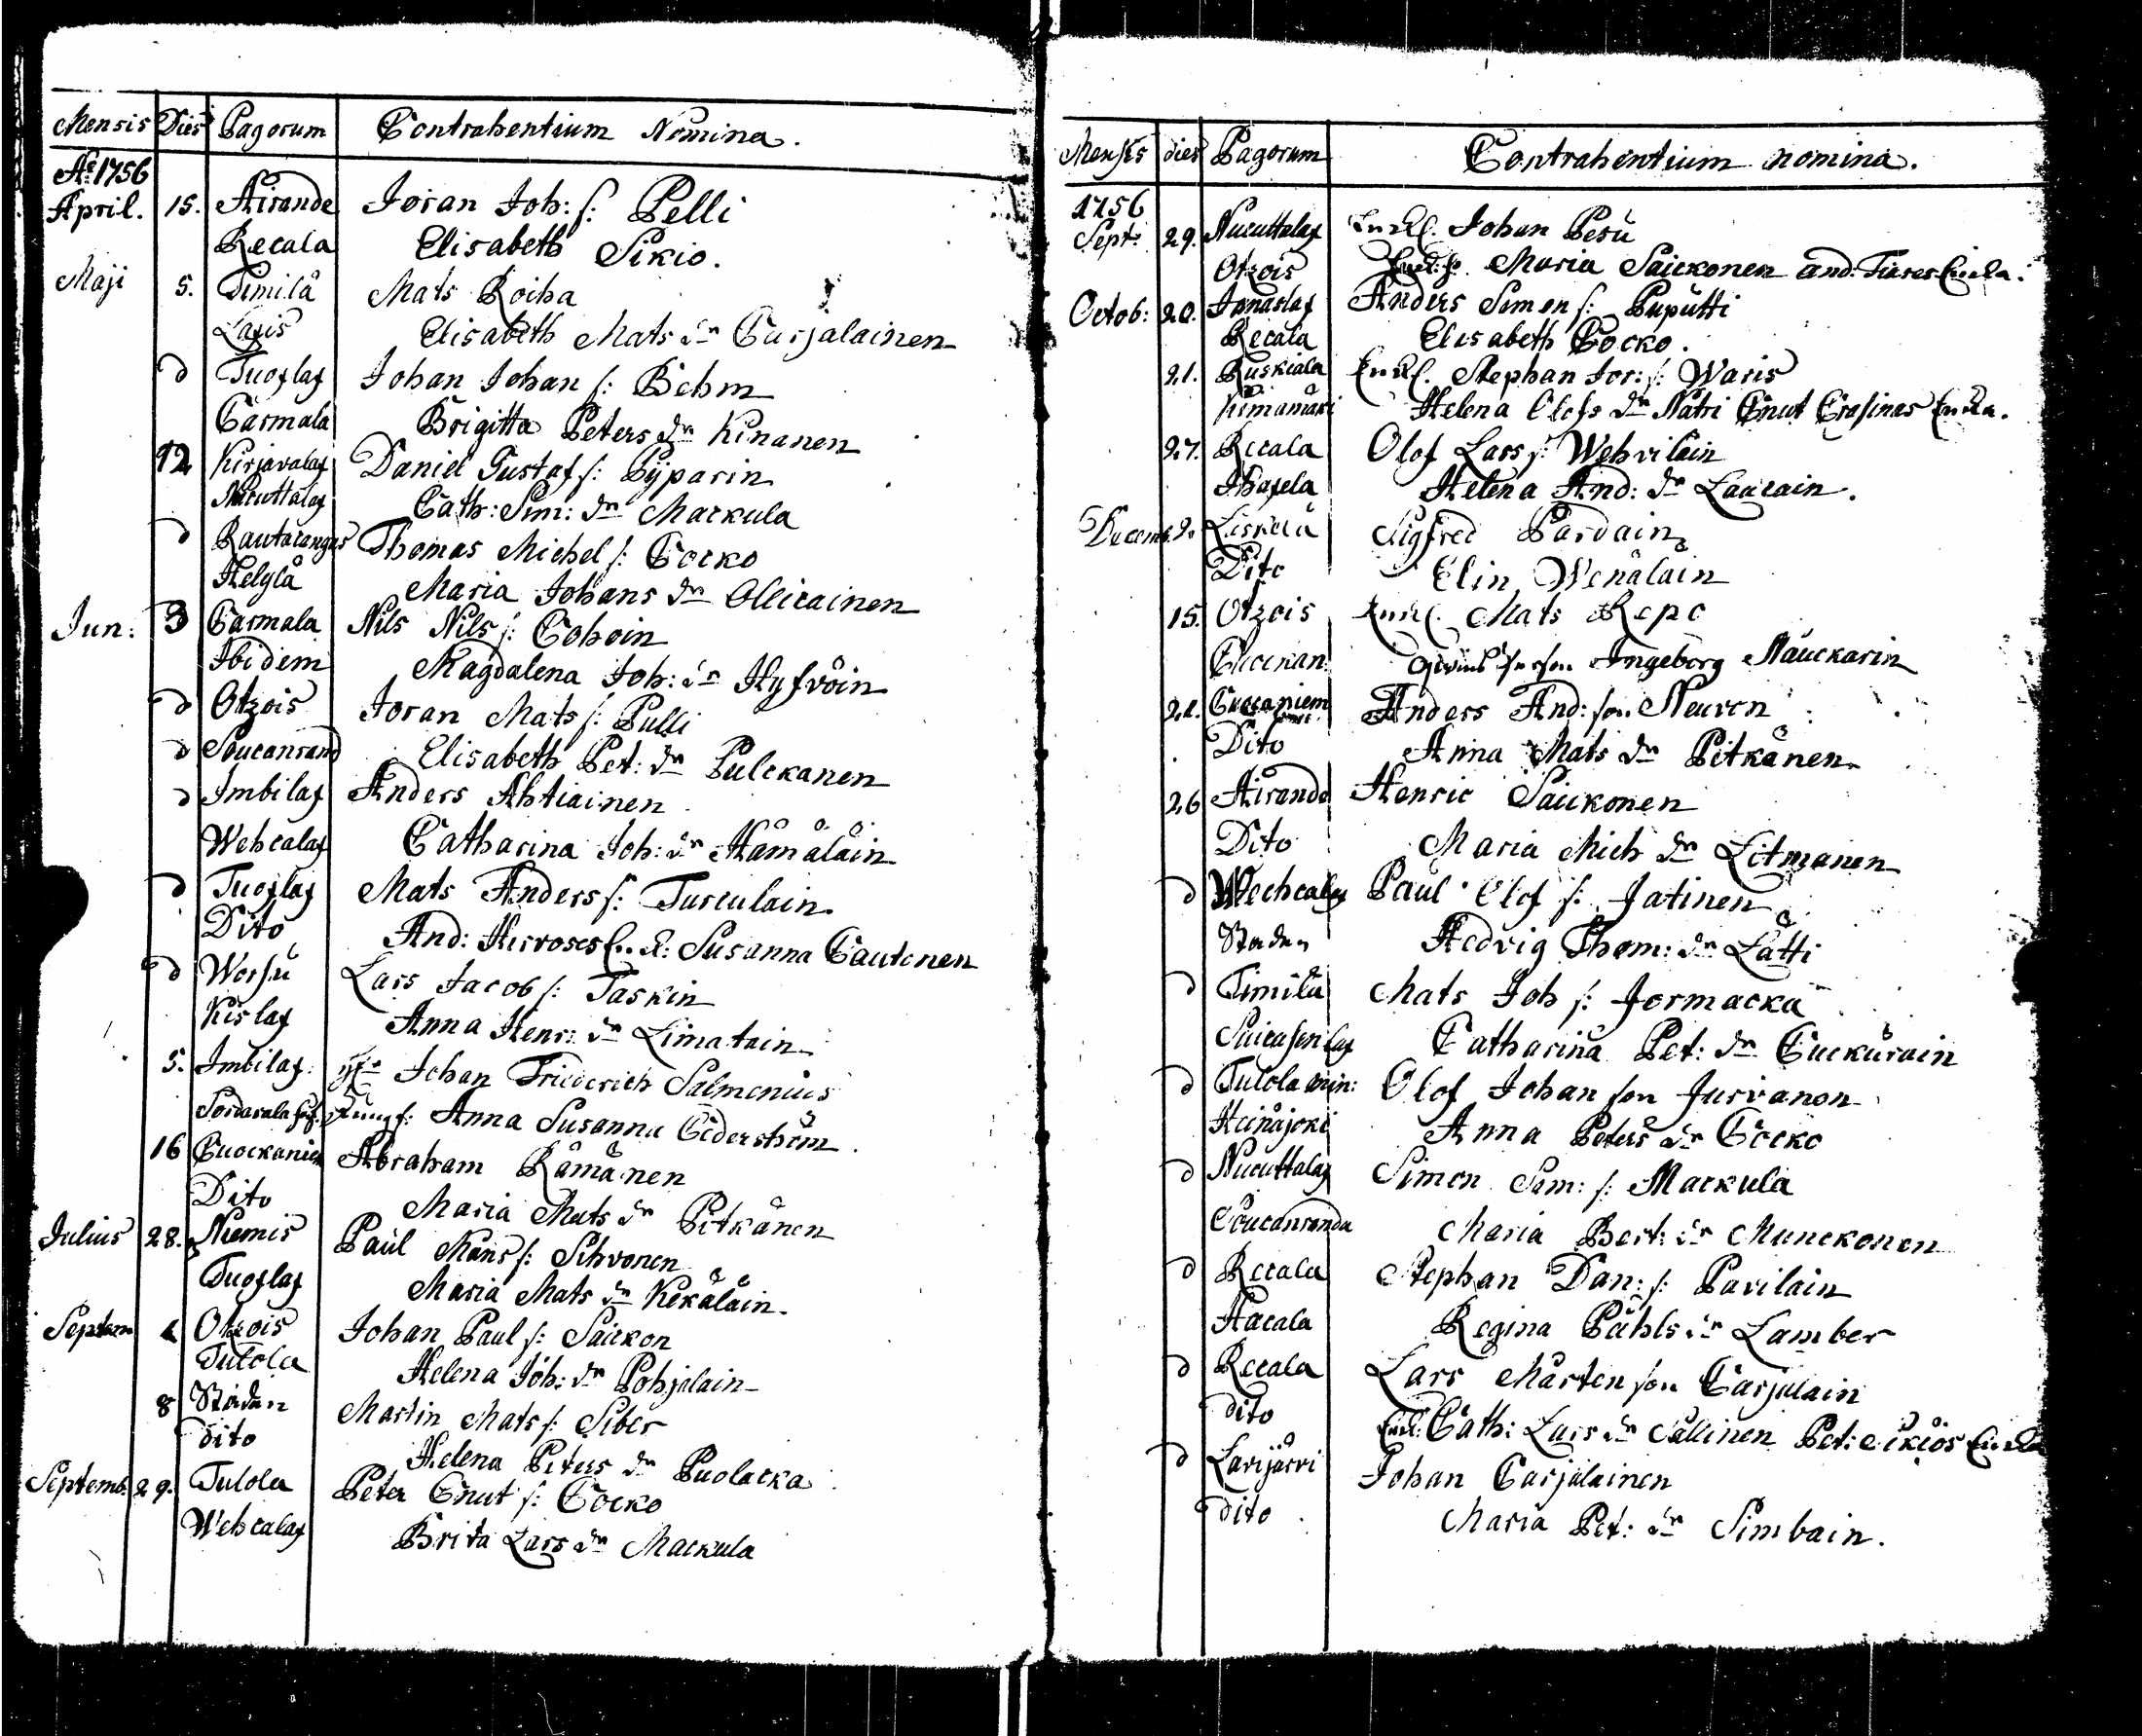 Mensis Dies Pagorum Contrahentium Nomina.
Aõ 1756
April. 15. Airande Joran Joh: s: Pelli
Recala Elisabeth Sikio.
Maji 5. Simila Mats Roiha
Laxis Elisabeth Mats dr Carjalainen
d Tuoslax Johan Johan s: Behm
Carmala Brigitta Peters dr Kinanen
12 Kirjavalax Daniel Gustaf s: Pyparin
Nucuttalax Cath: Sim: dr Mackula
d Rautacangas Thomas Michel s: Cocko
Helylä Maria Johans dr Ollicainen
Jun: 3 Carmala Nils Nils s: Cohoin
Ibidem Magdalena Joh: dr Hyfvöin
d Otzois Joran Mats s: Pulli
d Soucanrand Elisabeth Pet: dr Pulckanen
d Imbilax Anders Ahtiainen
Wehcalax Catharina Joh: dr Hämäläin
d Tuoslax Mats Anders s: Turculain
Dito And: Hirvoses E. : Susanna Cautonen
d Worsu Lars Jacob s: Taskin
Kislax Anna Henr: dr Limatain
5. Imbilax Johan Friederich Salmenius
Sordavala Jungf: Anna Susanna Cederström
16 Cuockaniem Abraham Rämänen
Dito Maria Mats dr Pitkänen
Julius 28. Niemis Paul Mans s: Sihvonen
Tuoslax Maria Mats dr Kekäläin
Septem Otzois Johan Paul s: Saickon
Tulola Helena Joh: dr Pohjolain
8 Staden Martin Mats s: Siber
dito Helena Peters dr Puolacka
Septemb. 29. Tulola Peter Cnut s: Cocko
Wehcalax Brita Lars dr Mackula
Menses dies Pagorum Contrahentium nomina.
1756
Sept: 29. Nucuttalax Enkl. Johan Pesu
Otzois Maria Saickonen And: Tiares Encka.
Octob: 20. Jonaslax Anders Simon s: Puputti
Recala Elisabeth Cocko.
21. Ruskiala Enkl. Stephan Jor: s: Waris
Kirimämäki Helena Olofs dr Nätri Cnut Crasinas Encka.
27. Recala Olof Lars s: Wehvilein
Ihaxela Helena And: dr Laacain.
Decemb. 2. Liskela Sigfred Pardain
Dito Elin Wenäläin
15. Otzois Enkl. Mats Repo
Cuockan: Ingeborg Nauckarin
21. Cuocaniem Anders And: son Neuvon
Dito Anna Mats dr Pitkänen
26 Airande Henric Saickonen
Dito Maria Mich dr Litmanen
d Wechcalax Paul Olof s: Jatinen
Staden Hedvig Thom: dr Lätti
d Simila Mats Joh s: Jormacka
Suicasenlax Catharina Pet: dr Cuckurain
d Tulola min: Olof Johan son Jurvanon
Heinäjoki Anna Peters dr Cocko
d Nucuttalax Simon Sam: s: Mackula
Coucanranda Maria Bert: dr Munckonen
d Recala Stephan Dan: s: Pavilain
Hacala Regina Påhls dr Lamber
d Recala Lars Mårten son Carjalain
dito Enk: Cath: Lars dr Sallinen Pet: Sikiös Encka
d Larijärvi Johan Carjalainen
dito Maria Pet: dr Simbain.